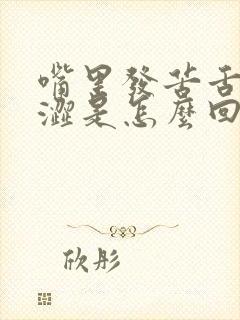 嘴里發苦舌
澀是怎麼回
欣彤